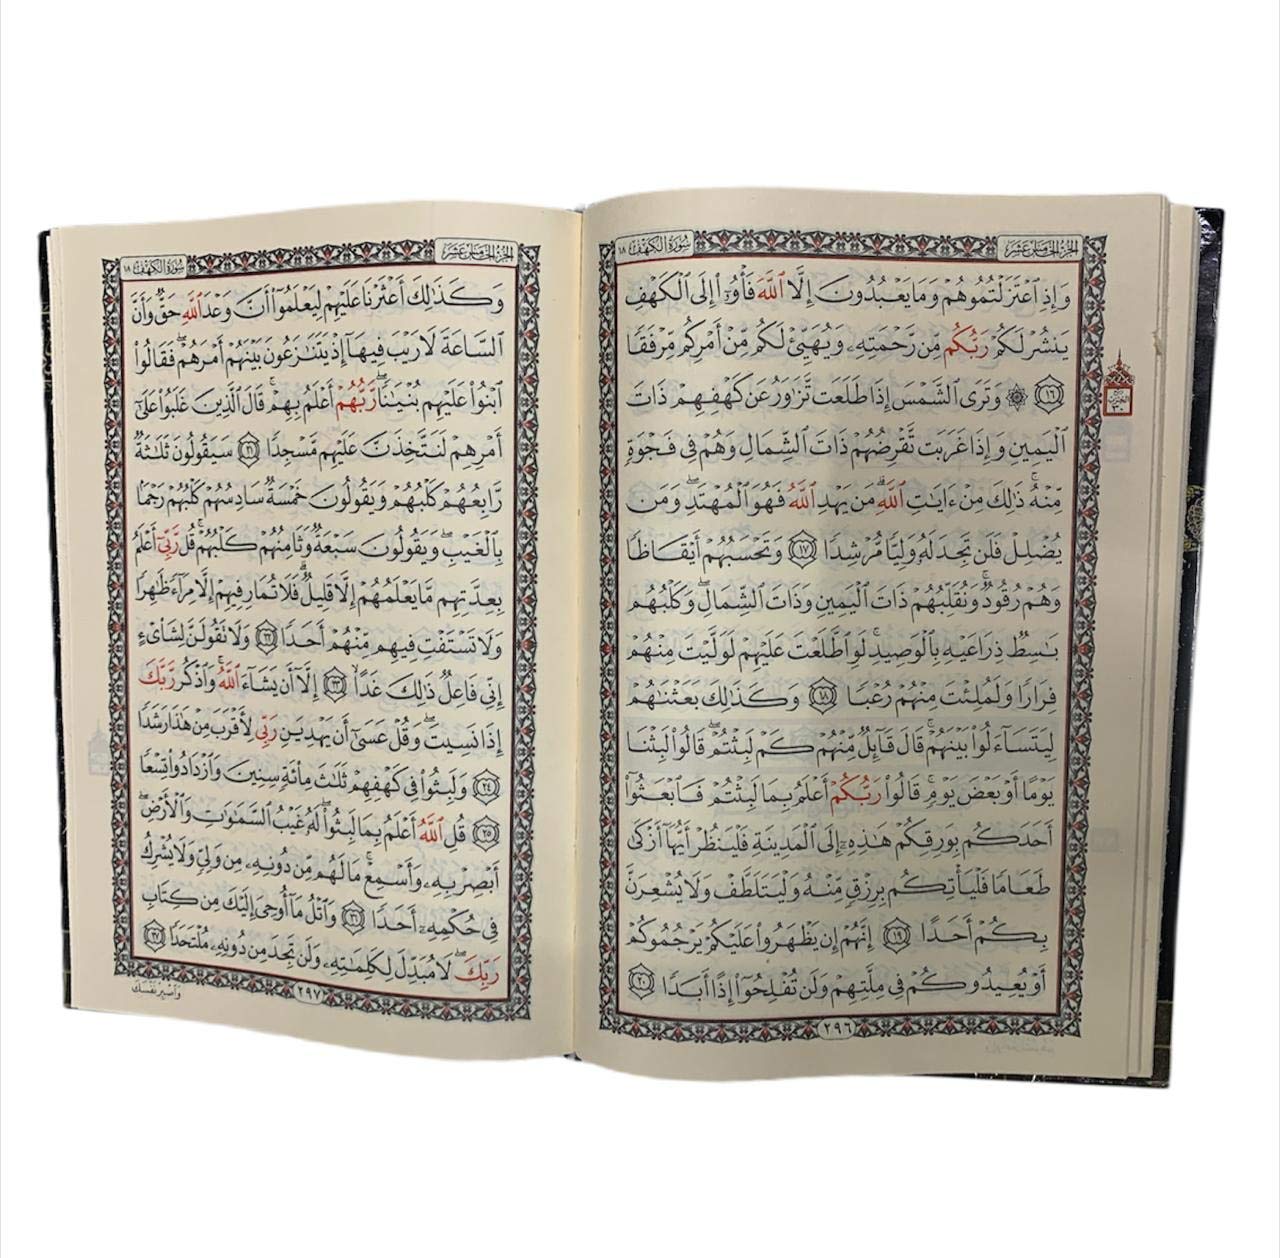 الجزء الخامس عشر
سورة الكهف ١٨
وَإِذِ ٱعۡتَزَلۡتُمُوهُمۡ وَمَا يَعۡبُدُونَ إِلَّا ٱللَّهَ فَأۡوُۥٓاْ إِلَى ٱلۡكَهۡفِ
يَنشُرۡ لَكُمۡ رَبُّكُم مِّن رَّحۡمَتِهِۦ وَيُهَيِّئۡ لَكُم مِّنۡ أَمۡرِكُم مِّرۡفَقٗا
١٦ ۞ وَتَرَى ٱلشَّمۡسَ إِذَا طَلَعَت تَّزَٰوَرُ عَن كَهۡفِهِمۡ ذَاتَ
ٱلۡيَمِينِ وَإِذَا غَرَبَت تَّقۡرِضُهُمۡ ذَاتَ ٱلشِّمَالِ وَهُمۡ فِي فَجۡوَةٖ
مِّنۡهُۚ ذَٰلِكَ مِنۡ ءَايَٰتِ ٱللَّهِۗ مَن يَهۡدِ ٱللَّهُ فَهُوَ ٱلۡمُهۡتَدِۖ وَمَن
يُضۡلِلۡ فَلَن تَجِدَ لَهُۥ وَلِيّٗا مُّرۡشِدٗا ١٧ وَتَحۡسَبُهُمۡ أَيۡقَاظٗا
وَهُمۡ رُقُودٞۚ وَنُقَلِّبُهُمۡ ذَاتَ ٱلۡيَمِينِ وَذَاتَ ٱلشِّمَالِۖ وَكَلۡبُهُم
بَٰسِطٞ ذِرَاعَيۡهِ بِٱلۡوَصِيدِۚ لَوِ ٱطَّلَعۡتَ عَلَيۡهِمۡ لَوَلَّيۡتَ مِنۡهُمۡ
فِرَارٗا وَلَمُلِئۡتَ مِنۡهُمۡ رُعۡبٗا ١٨ وَكَذَٰلِكَ بَعَثۡنَٰهُمۡ
لِيَتَسَآءَلُواْ بَيۡنَهُمۡۚ قَالَ قَآئِلٞ مِّنۡهُمۡ كَمۡ لَبِثۡتُمۡۖ قَالُواْ لَبِثۡنَا
يَوۡمًا أَوۡ بَعۡضَ يَوۡمٖۚ قَالُواْ رَبُّكُمۡ أَعۡلَمُ بِمَا لَبِثۡتُمۡ فَٱبۡعَثُوٓاْ
أَحَدَكُم بِوَرِقِكُمۡ هَٰذِهِۦٓ إِلَى ٱلۡمَدِينَةِ فَلۡيَنظُرۡ أَيُّهَآ أَزۡكَىٰ
طَعَامٗا فَلۡيَأۡتِكُم بِرِزۡقٖ مِّنۡهُ وَلۡيَتَلَطَّفۡ وَلَا يُشۡعِرَنَّ
بِكُمۡ أَحَدًا ١٩ إِنَّهُمۡ إِن يَظۡهَرُواْ عَلَيۡكُمۡ يَرۡجُمُوكُمۡ
أَوۡ يُعِيدُوكُمۡ فِي مِلَّتِهِمۡ وَلَن تُفۡلِحُوٓاْ إِذًا أَبَدٗا ٢٠
٢٩٦
الجزء الخامس عشر
سورة الكهف ١٨
وَكَذَٰلِكَ أَعۡثَرۡنَا عَلَيۡهِمۡ لِيَعۡلَمُوٓاْ أَنَّ وَعۡدَ ٱللَّهِ حَقّٞ وَأَنَّ
ٱلسَّاعَةَ لَا رَيۡبَ فِيهَآ إِذۡ يَتَنَٰزَعُونَ بَيۡنَهُمۡ أَمۡرَهُمۡۖ فَقَالُواْ
ٱبۡنُواْ عَلَيۡهِم بُنۡيَٰنٗاۖ رَّبُّهُمۡ أَعۡلَمُ بِهِمۡۚ قَالَ ٱلَّذِينَ غَلَبُواْ عَلَىٰٓ
أَمۡرِهِمۡ لَنَتَّخِذَنَّ عَلَيۡهِم مَّسۡجِدٗا ٢١ سَيَقُولُونَ ثَلَٰثَةٞ
رَّابِعُهُمۡ كَلۡبُهُمۡ وَيَقُولُونَ خَمۡسَةٞ سَادِسُهُمۡ كَلۡبُهُمۡ رَجۡمَۢا
بِٱلۡغَيۡبِۖ وَيَقُولُونَ سَبۡعَةٞ وَثَامِنُهُمۡ كَلۡبُهُمۡۚ قُل رَّبِّيٓ أَعۡلَمُ
بِعِدَّتِهِم مَّا يَعۡلَمُهُمۡ إِلَّا قَلِيلٞۗ فَلَا تُمَارِ فِيهِمۡ إِلَّا مِرَآءٗ ظَٰهِرٗا
وَلَا تَسۡتَفۡتِ فِيهِم مِّنۡهُمۡ أَحَدٗا ٢٢ وَلَا تَقُولَنَّ لِشَاْيۡءٍ
إِنِّي فَاعِلٞ ذَٰلِكَ غَدًا ٢٣ إِلَّآ أَن يَشَآءَ ٱللَّهُۚ وَٱذۡكُر رَّبَّكَ
إِذَا نَسِيتَۖ وَقُلۡ عَسَىٰٓ أَن يَهۡدِيَنِ رَبِّي لِأَقۡرَبَ مِنۡ هَٰذَا رَشَدٗا
٢٤ وَلَبِثُواْ فِي كَهۡفِهِمۡ ثَلَٰثَ مِاْئَةٖ سِنِينَ وَٱزۡدَادُواْ تِسۡعٗا
٢٥ قُلِ ٱللَّهُ أَعۡلَمُ بِمَا لَبِثُواْۖ لَهُۥ غَيۡبُ ٱلسَّمَٰوَٰتِ وَٱلۡأَرۡضِۖ
أَبۡصِرۡ بِهِۦ وَأَسۡمِعۡۚ مَا لَهُم مِّن دُونِهِۦ مِن وَلِيّٖ وَلَا يُشۡرِكُ
فِي حُكۡمِهِۦٓ أَحَدٗا ٢٦ وَٱتۡلُ مَآ أُوحِيَ إِلَيۡكَ مِن كِتَابِ
رَبِّكَۖ لَا مُبَدِّلَ لِكَلِمَٰتِهِۦ وَلَن تَجِدَ مِن دُونِهِۦ مُلۡتَحَدٗا ٢٧
٢٩٧
وَاصْبِرْ نَفْسَكَ